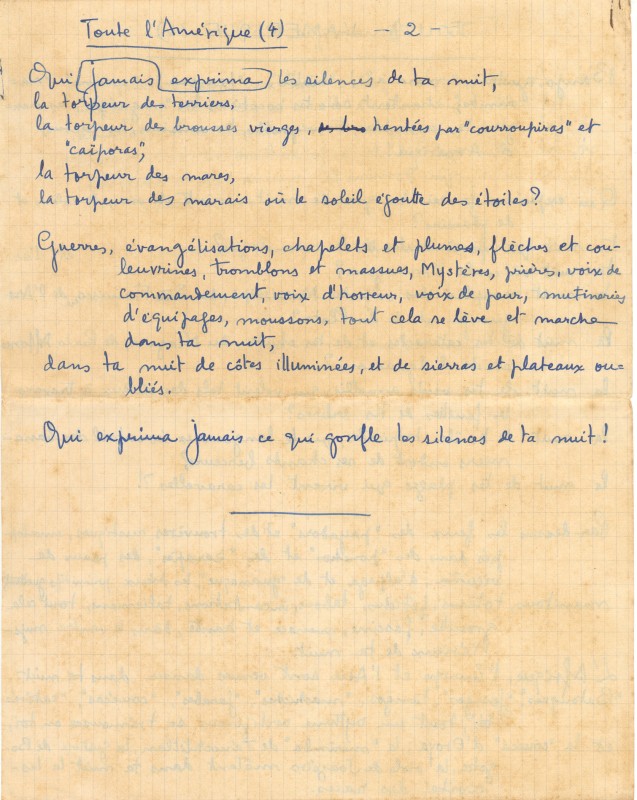 Toute l'Amérique (4) - 2 -
Qui jamais exprima les silences de ta nuit,
la torpeur des terriers,
la torpeur des brousses vierges, hantées par "courroupiras" et
"caïporas",
la torpeur des mares,
la torpeur des marais où le soleil égoutte des étoiles?
Guerres, évangélisations, chapelets et plumes, flèches et cou-
leuvrines, tromblons et massues, Mystères, prières, voix de
commandement, voix d'horreur, voix de peur, mutineries
d'équipages, moussons, tout cela se lève et marche
dans ta nuit,
dans ta nuit de côtes illuminées, et de sierras et plateaux ou=
bliés.
Qui exprima jamais ce qui gonfle les silences de ta nuit!